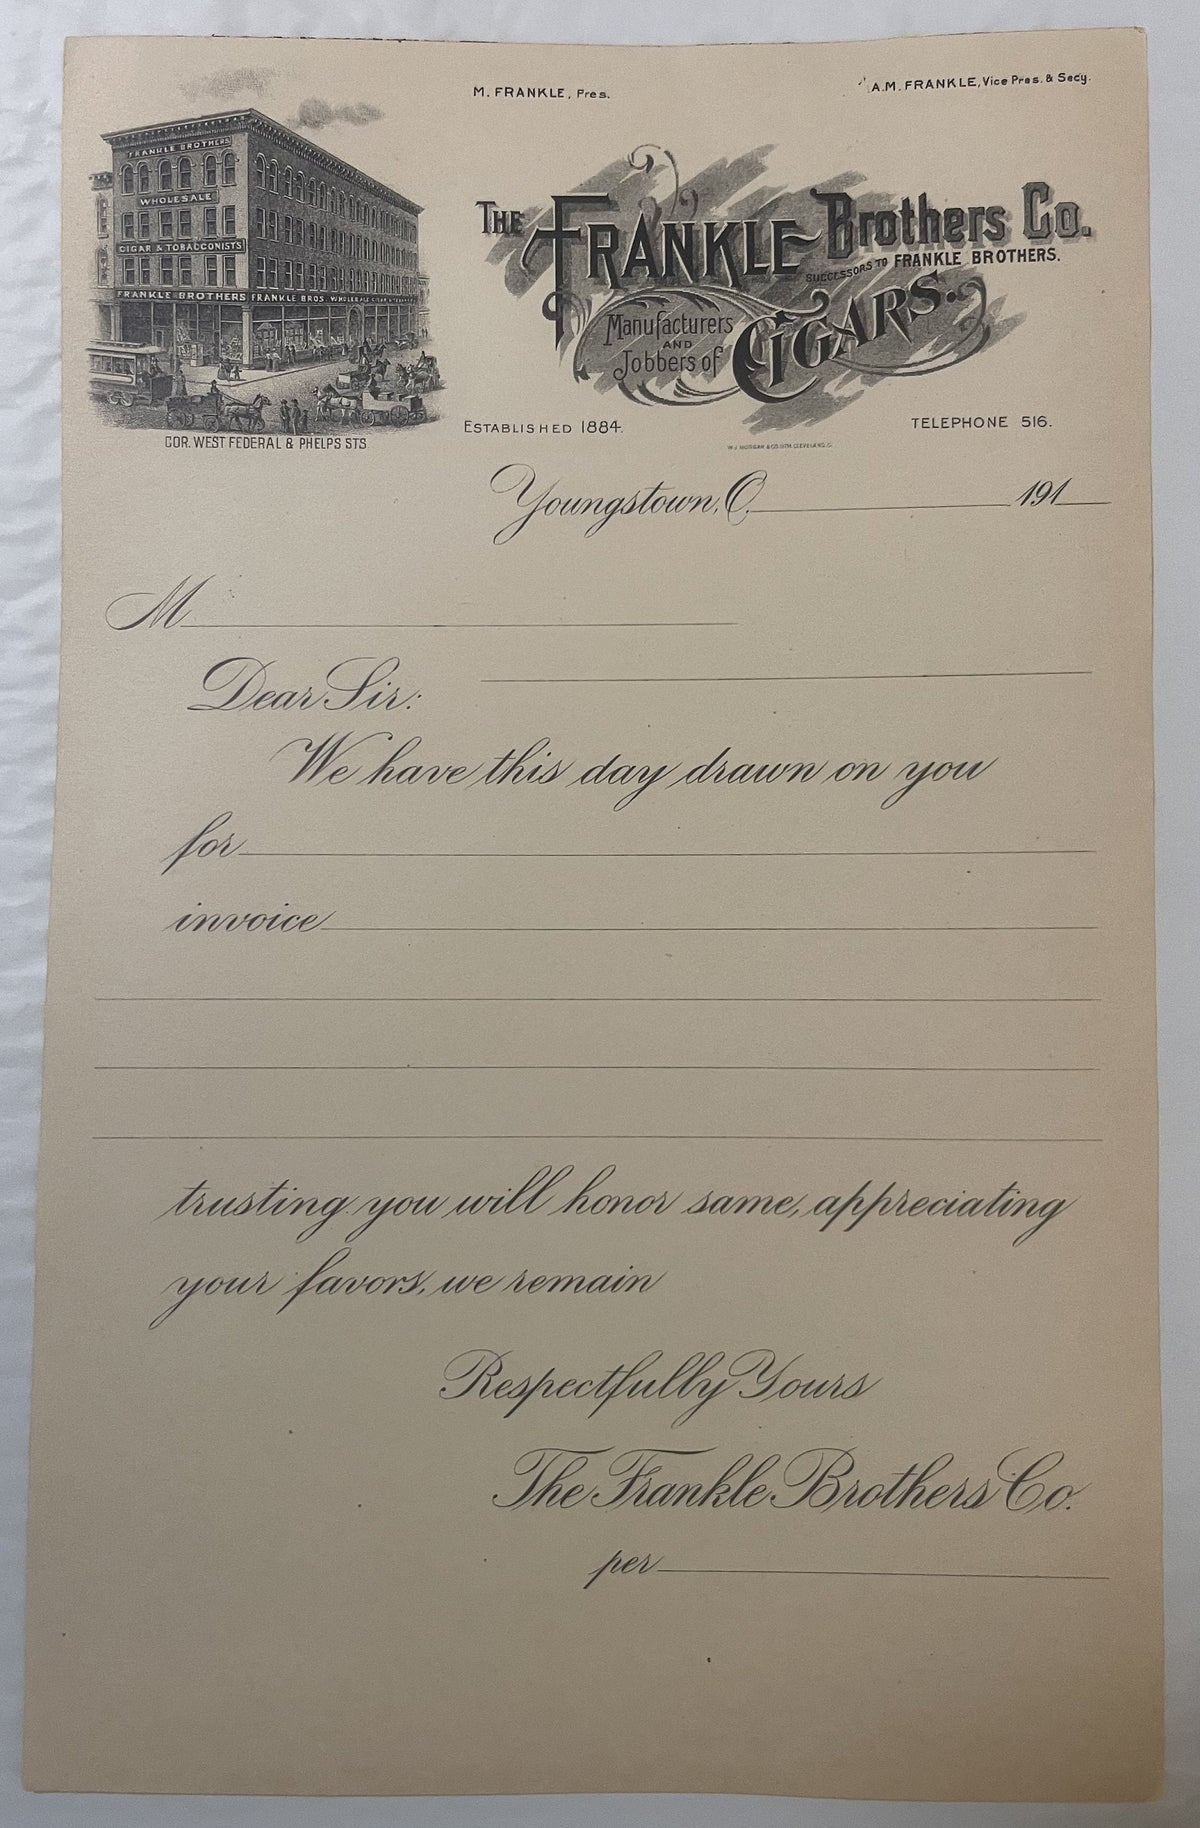 M. FRANKLE, Pres.
A.M. FRANKLE, Vice Pres. & Secy.
FRANKLE BROTHERS
WHOLESALE
CIGAR & TOBACCONISTS
FRANKLE BROTHERS FRANKLE BROS. WHOLESALE CIGAR
COR. WEST FEDERAL & PHELPS STS.
THE FRANKLE Brothers Co.
SUCCESSORS TO FRANKLE BROTHERS.
Manufacturers
AND
Jobbers of
CIGARS.
ESTABLISHED 1884.
TELEPHONE 516.
W.J. MORGAN & CO. LITH. CLEVELAND, O.
Youngstown, O. 191
M
Dear Sir:
We have this day drawn on you
for
invoice
trusting you will honor same, appreciating
your favors, we remain
Respectfully Yours
The Frankle Brothers Co.
per